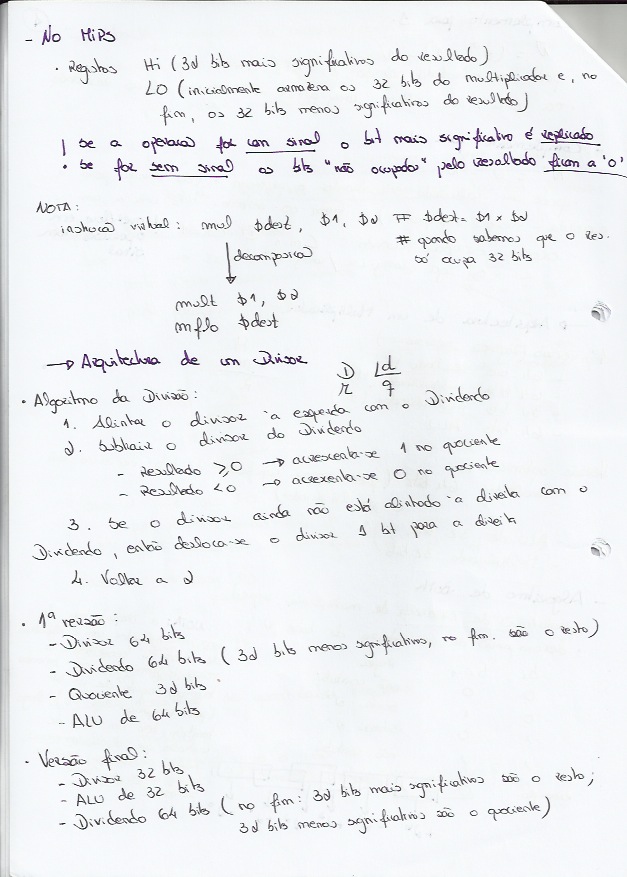 - No MIPS
• Registos Hi (32 bits mais significativos do resultado)
LO (inicialmente armazena os 32 bits do multiplicador e, no
fim, os 32 bits menos significativos do resultado)
| Se a operação for com sinal o bit mais significativo é replicado
• Se for sem sinal os bits "não ocupados" pelo resultado ficam a '0'
NOTA:
instrução virtual: mul $dest, $1, $2 # $dest = $1 x $2
# quando sabemos que o res.
só ocupa 32 bits
decomposição
mult $1, $2
mflo $dest
→ Arquitectura de um Divisor
D | d
r q
• Algoritmo da Divisão:
1. Alinhar o divisor à esquerda com o Dividendo
2. Subtrair o divisor do Dividendo
- Resultado ≥ 0 → acrescenta-se 1 no quociente
- Resultado < 0 → acrescenta-se 0 no quociente
3. Se o divisor ainda não está alinhado à direita com o
Dividendo, então desloca-se o divisor 1 bit para a direita
4. Voltar a 2
• 1ª versão:
- Divisor 64 bits
- Dividendo 64 bits (32 bits menos significativos, no fim. são o resto)
- Quociente 32 bits
- ALU de 64 bits
• Versão final:
- Divisor 32 bits
- ALU de 32 bits
- Dividendo 64 bits (no fim: 32 bits mais significativos são o resto;
32 bits menos significativos são o quociente)